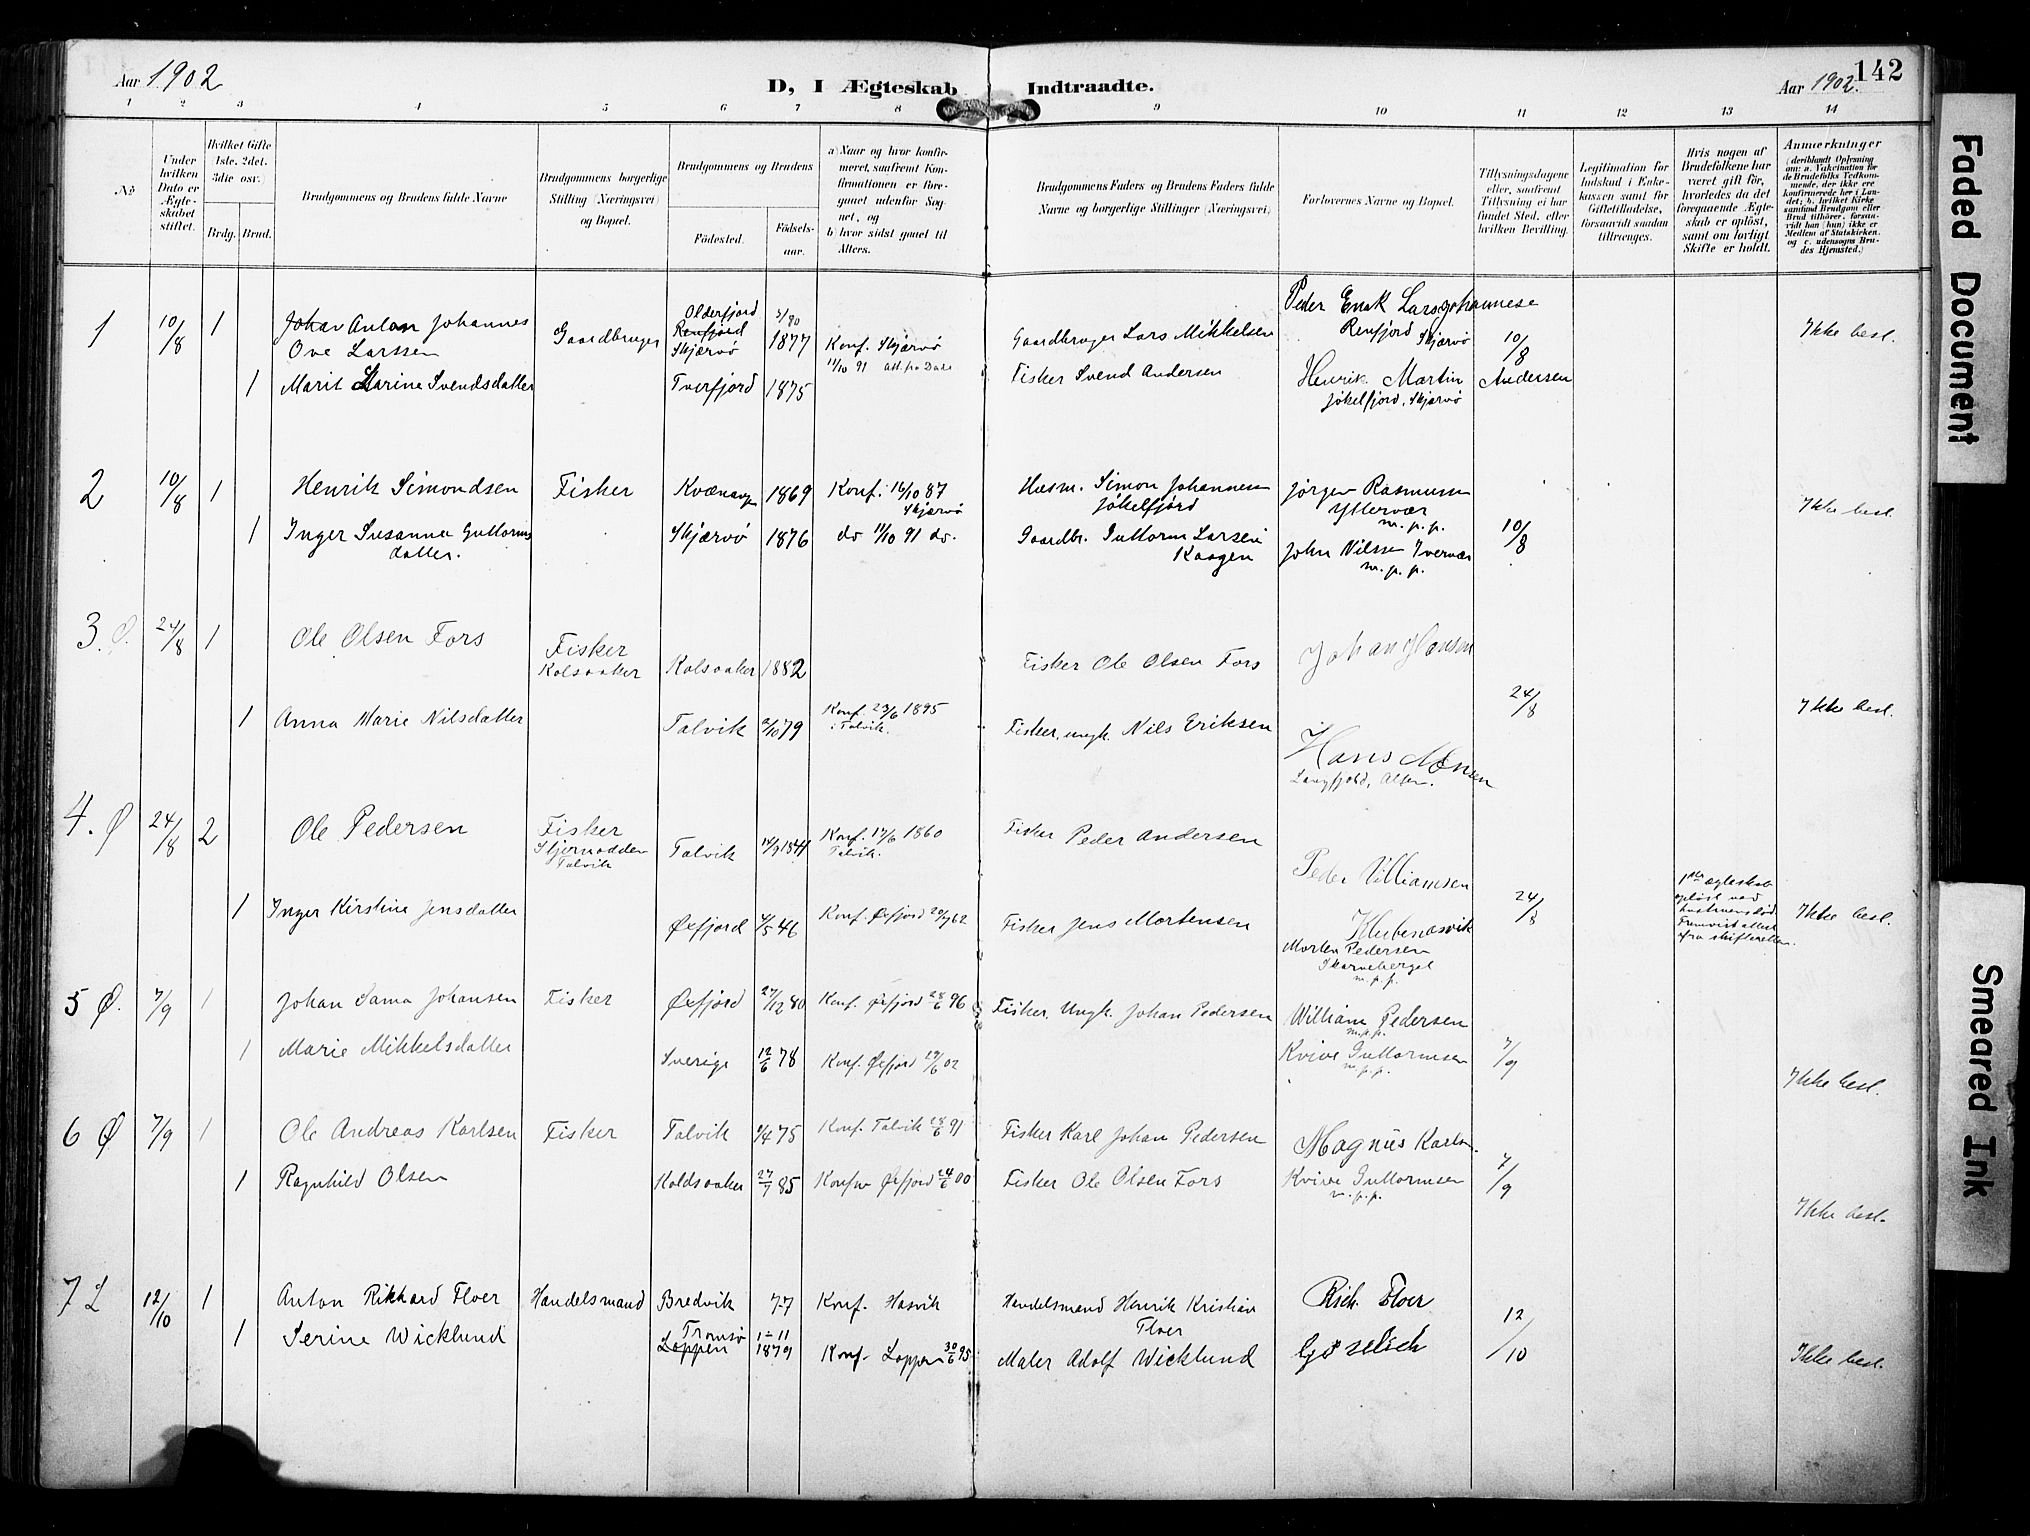 Aar 1902
D, I Ægteskab Indtraadte.
Aar 1902.
142
1 2 3 4 5 6 7 8 9 10 11 12 13 14
No
Under hvilken Dato er Ægteskabet stiftet.
Hvilket Gifte (1ste, 2det, 3die osv.)
Brdg. Brud.
Brudgommens og Brudens fulde Navne
Brudgommens borgerlige Stilling (Næringsvei) og Bopæl.
Brudgommens og Brudens
Fødested.
Fødselsaar.
a) Naar og hvor konfirmeret, saafremt Konfirmationen er foregaaet udenfor Sognet, og
b) hvor sidst gaaet til Alters.
Brudgommens Faders og Brudens Faders fulde Navne og borgerlige Stillinger (Næringsvei)
Forlovernes Navne og Bopæl.
Tillysningsdagene eller, saafremt Tillysning ei har fundet Sted, efter hvilken Bevilling.
Legitimation for Indskud i Enkekassen samt for Giftetilladelse, forsaavidt saadan tiltrænges.
Hvis nogen af Brudefolkene har været gift før, hvorledes da det foregaaende Ægteskab er opløst, samt om lovligt Skifte er holdt.
Anmerkninger
(deriblandt Oplysning om: a. Vakcination for de Brudefolks Vedkommende, der ikke ere konfirmerede her i Landet; b. hvilket Kirkesamfund Brudgom eller Brud tilhører, forsaavidt han (hun) ikke er Medlem af Statskirken, og c. udensogns Brudes Hjemsted.)
1 10/8 1 Johan Anton Johannes Ove Larssen Gaardbruger Olderfjord Skjærvø 1877 Konf. Skjærvø Gaardbruger Lars Mikkelsen Peder Enok Lars Johannese
Skjærvø 10/8 Ikke besl.
1 Marit Karine Svendsdatter Tverfjord 1875 11/10 91 Fisker Svend Andersen Henrik Martin Andersen
Jøkelfjord, Skjærvø
2 10/8 1 Henrik Simondsen Fisker Kvænang 1869 Konf. 16/10 87 Skjærvø Husm. Simon Johannesen Jøkelfjord Jørgen Rasmussen
m. p. p. Ikke besl.
1 Inger Susanna Guttorms datter. Skjærvø 1876 do 11/10 91 do. Gaardbr. Guttorm Larsen Kaagen John Nilssen
m. p. p. 10/8
3. Ø. 24/8 1 Ole Olsen Fors Fisker Kolsaaker Kolsaaker 1882 Fisker Ole Olsen Fors Johan Hansen
24/8 Ikke besl.
1 Anna Marie Nilsdatter Talvik 2/10 79 Konf. 23/6 1895 i Talvik. Fisker, ungk. Nils Eriksen Hans
Langfjord, Alten.
4. Ø 24/8 2 Ole Pedersen Fisker Talvik Talvik Konf. 17/6 1860 Talvik. Fisker Peder Andersen Peder Villiamsen
24/8 1ste ægteskab opløst ved hustruens død. Fremvist attest fra skifteretten. Ikke besl.
1 Inger Kirstine Jensdatter Øxfjord 4/5 46 Konf. Øxfjord 62 Fisker Jens Mortensen Klubenesvik
Morten Pedersen
Skarvberget
m. p. p.
5 Ø. 7/9 1 Johan Sama Johansen Fisker Øxfjord 27/12 80 Konf. Øxfjord 28/6 96 Fisker, Ungk. Johan Pedersen William Pedersen
m. p. p.
1 Marie Mikkelsdatter Sverige 12/6 78 Konf. Øxfjord 29/6 02 Kvive Guttormsen
m. p. p. 7/9 Ikke besl.
6 Ø 7/9 1 Ole Andreas Karlsen Fisker Talvik 4/4 75 Konf. Talvik 28/6 91 Fisker Karl Johan Pedersen Magnus Karlsn
1 Ragnhild Olsen Koldsaaker 27/7 85 Konf. Øxfjord 24/6 00 Fisker Ole Olsen Fors Kvive Guttormsen
m. p. p. 7/9 Ikke besl.
7 L 12/10 1 Anton Rikhard Floer Handelsmand Bredvik 77 Konf. Hasvik Handelsmand Henrik Kristian Floer Rich. Floer
12/10
1 Serine Wicklund Tromsø Loppen 1-11 1879 Konf. Loppen 30/6 95 Maler Adolf Wicklund Ikke besl.
Faded Document
Smeared Ink